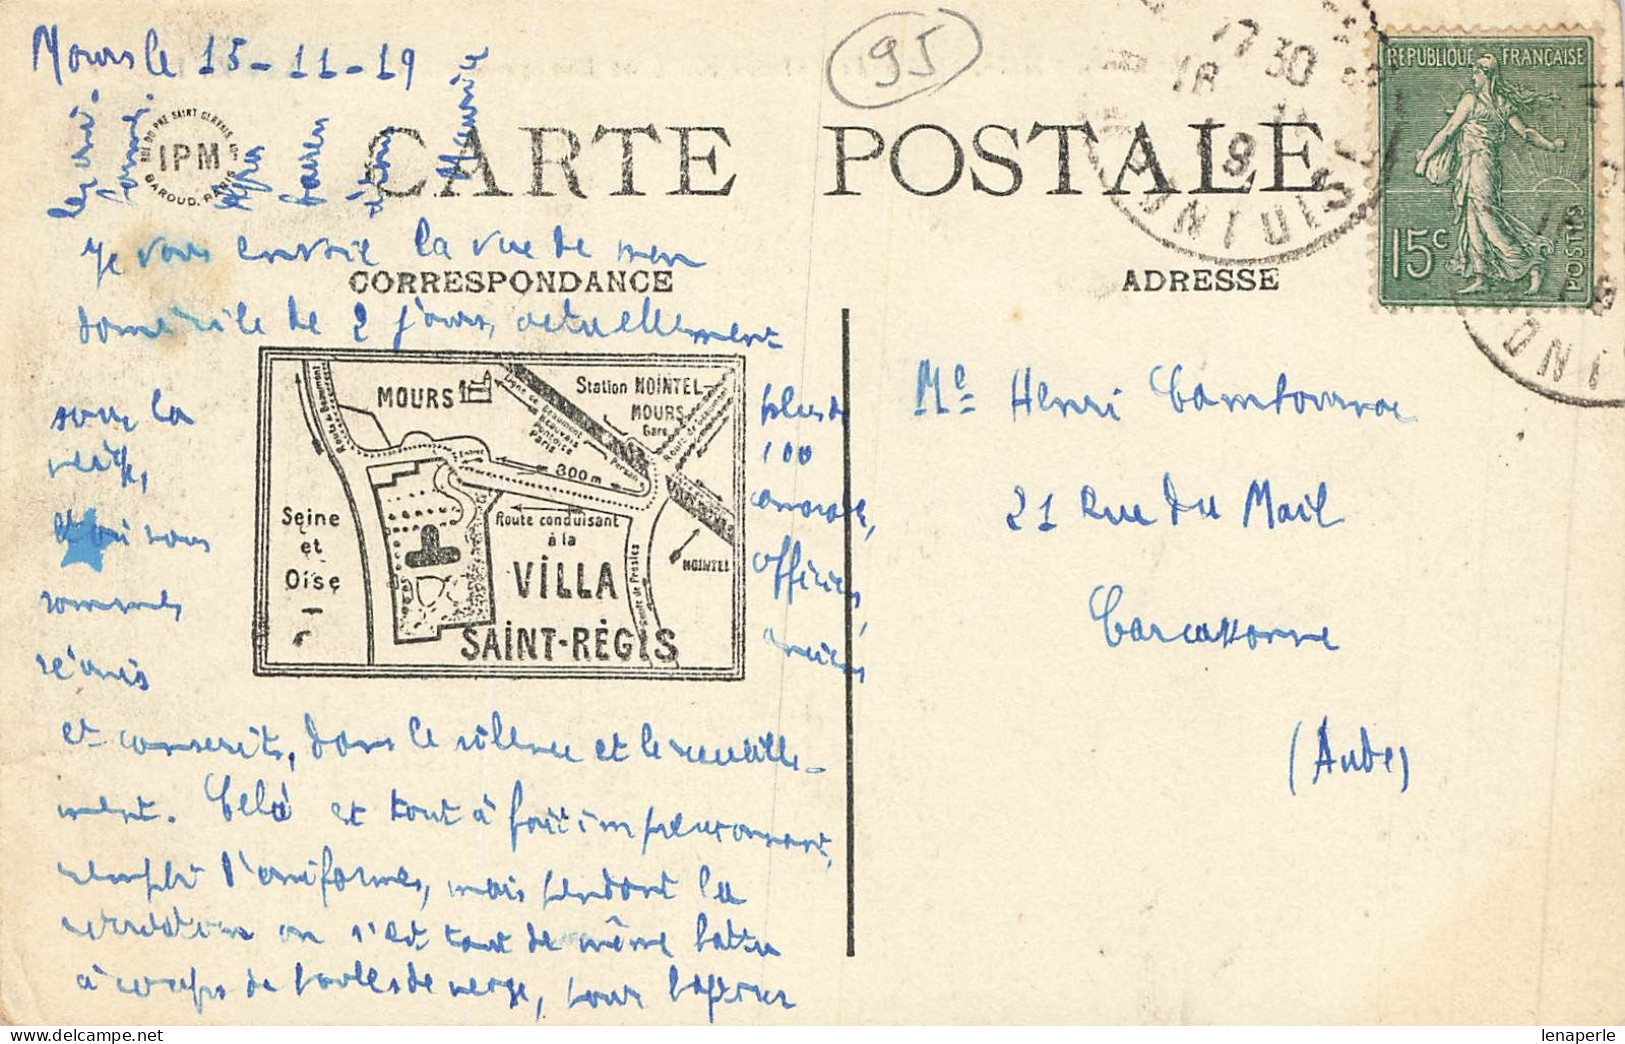 Mours le 15-11-19
95
RUE DU PRÉ SAINT GERVAIS
IPM
BAROUD. PARIS
CARTE POSTALE
Je vous envoie la vue de mon
CORRESPONDANCE
domicile de 2 jours, actuellement
sous la
neige,
et où nous
sommes
réunis
plus de
100
camarades,
officiers,
anciens
et conscrits, dans le silence et le recueille-
ment. Celà est tout à fait impressionnant,
remplit d'uniformes, mais pendant la
récréation on s'est tout de même battu
à coups de boules de neige, pour
Maurice
MOURS
Station NOINTEL-
MOURS
Gare
Route de Beaumont
Ligne de Beaumont
Beauvais
Pontoise
Paris
Persan
Entrée
300 m
Seine
et
Oise
Route conduisant
à la
VILLA
SAINT-RÉGIS
Route de Presles
NOINTEL
ADRESSE
17 30
18
11
19
RÉPUBLIQUE FRANÇAISE
15c
POSTES
Me Henri
21 Rue du Mail
Carcassonne
(Aude)
lenaperle